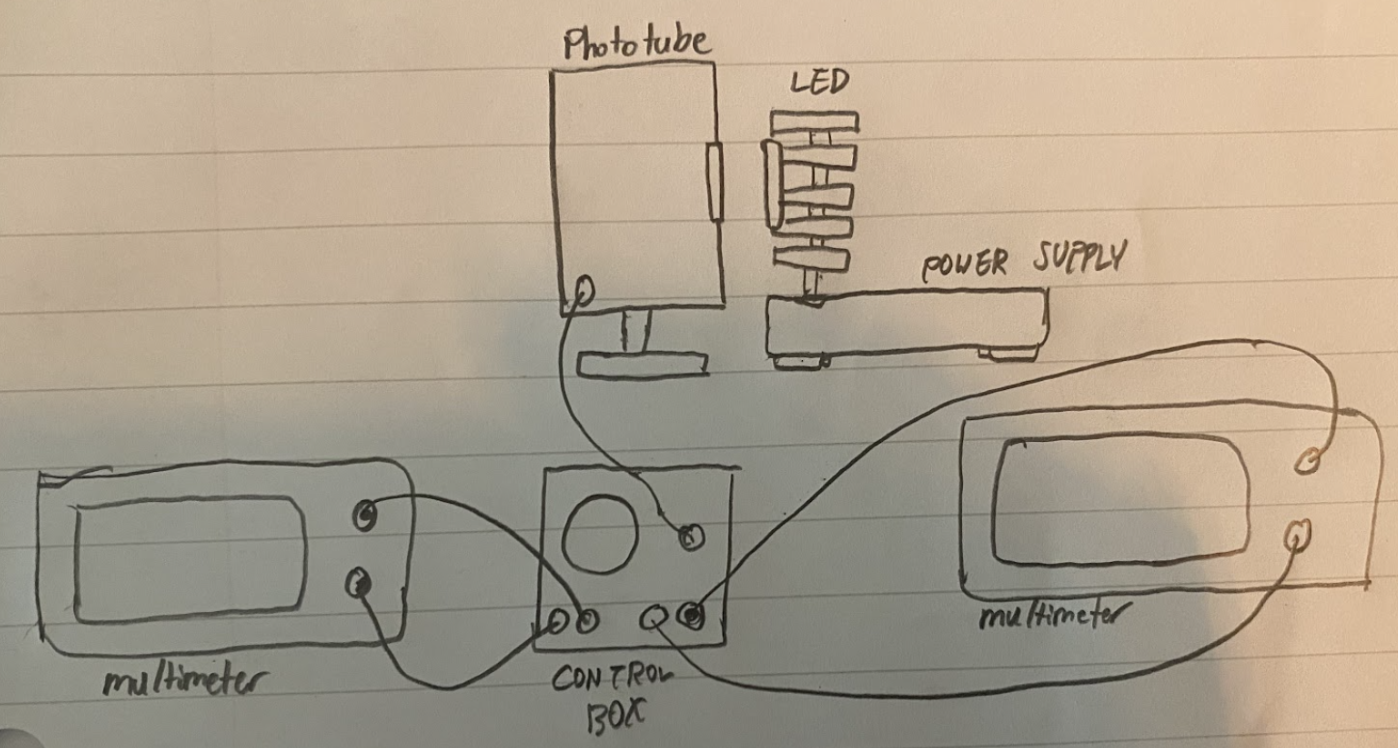 Phototube
LED
POWER SUPPLY
multimeter
CONTROL
BOX
multimeter